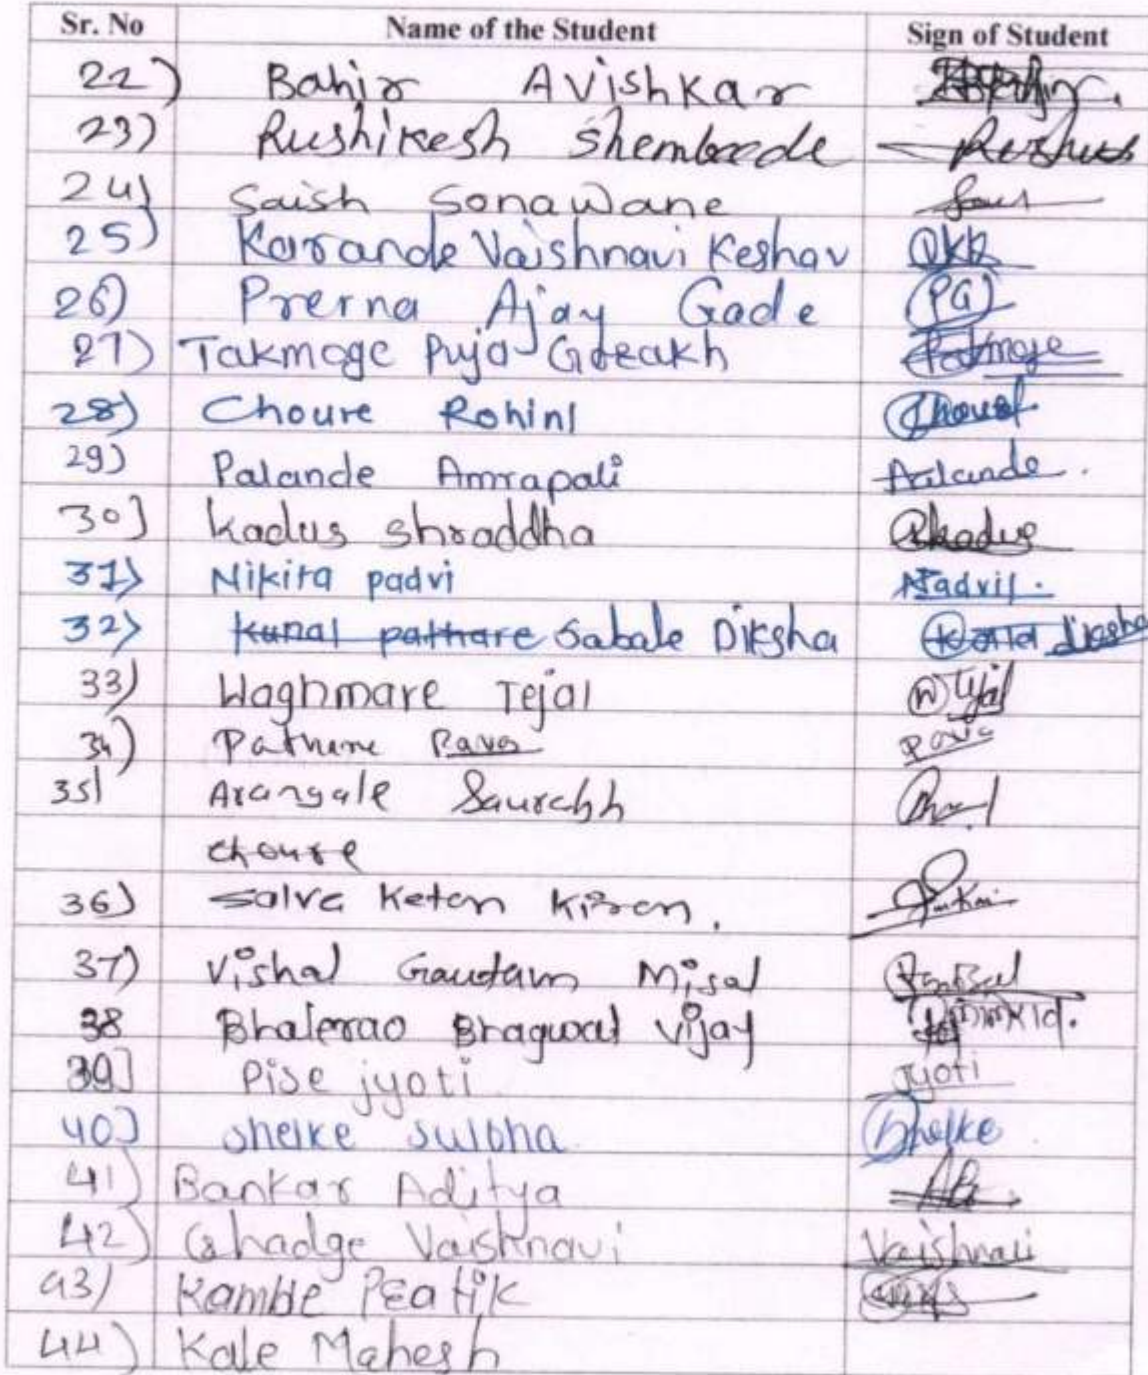 Sr. No Name of the Student Sign of Student
22) Bahir Avishkar
23) Rushikesh Shembade
24) Saish Sonawane
25) Karande Vaishnavi Keshav
26) Prerna Ajay Gade PG
27) Takmoge Puja Gorakh
28) Choure Rohini
29) Palande Amrapali Aalande.
30] Kadus Shraddha Skadus
31) Nikita padvi Nadvi
32) kunal pathare Sabale Diksha diksha
33) Waghmare Tejal W Tejal
34) Pathare
35) Arangale Saurabh
choure
36) Salve Ketan Kiran.
37) Vishal Gautam Misal
38 Bhalerao Bhagwat Vijay
39] Pise jyoti Jyoti
40] shelke sulbha Shelke
41) Bankar Aditya AB
42) Ghadge Vaishnavi Vaishnavi
43) Kamble Pratik
44) Kale Mahesh